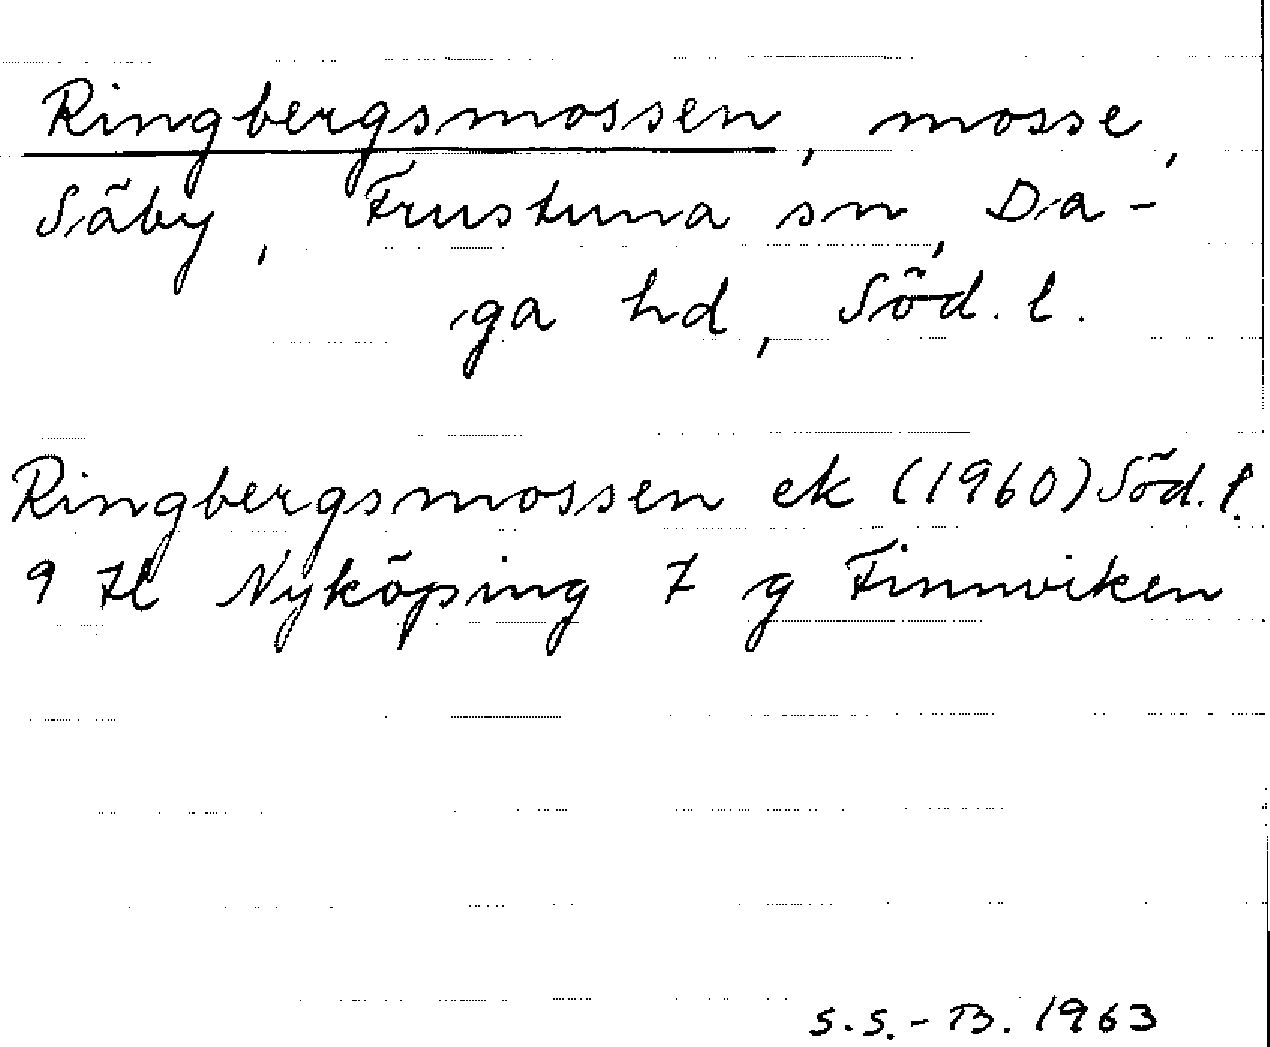 Ringbergsmossen, mosse,
Säby, Frustuna sn, Da-
ga hd, Söd. l.
Ringbergsmossen ek (1960) Söd. l.
9 Hl Nyköping 7 g Finnviken
S.S.-B. 1963